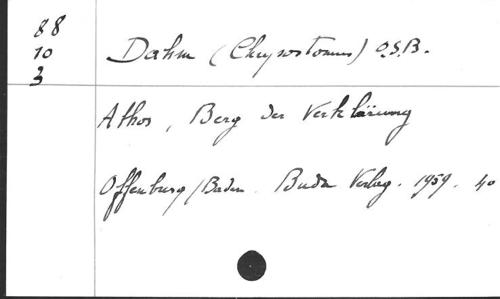 88
10
3
Dahm (Chrysostomus) O.S.B.
Athos, Berg der Verklärung
Offenburg/Baden. Burda Verlag. 1959. 40